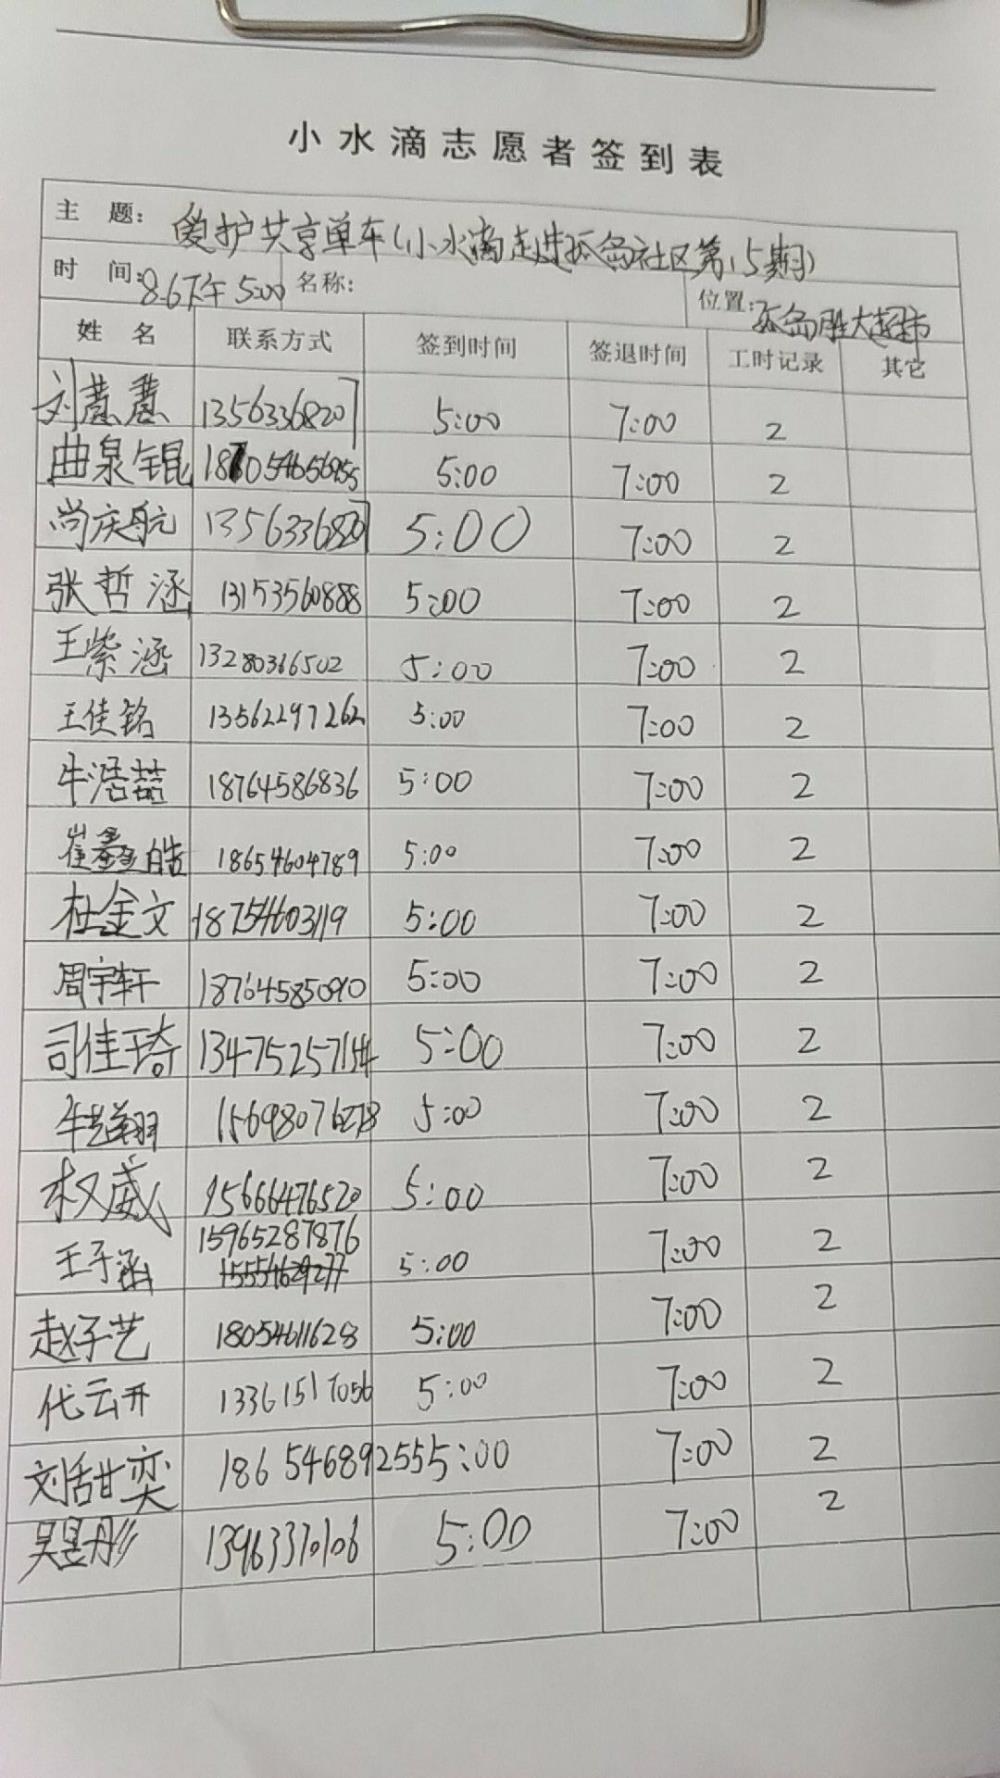 小水滴志愿者签到表
主 题：爱护共享单车（小水滴走进孤岛社区第15期）
时 间：8.6下午5:00 名称： 位置：孤岛胜大超市
姓 名 联系方式 签到时间 签退时间 工时记录 其它
刘薏薏 13563368207 5:00 7:00 2
曲泉锟 5:00 7:00 2
尚庆航 13563368207 5:00 7:00 2
张哲涵 13153560888 5:00 7:00 2
王紫涵 13280366502 5:00 7:00 2
王佳铭 13562297262 5:00 7:00 2
牛浯喆 18764586836 5:00 7:00 2
崔鑫皓 18654604789 5:00 7:00 2
杜金文 18754603119 5:00 7:00 2
周宇轩 18764585090 5:00 7:00 2
司佳琦 13475257154 5:00 7:00 2
5:00 7:00 2
权威 15666476520 5:00 7:00 2
王子涵 15965287876 5:00 7:00 2
赵子艺 18054611628 5:00 7:00 2
代云开 13361517056 5:00 7:00 2
刘甜奕 18654689255 5:00 7:00 2
吴昱彤 13963370106 5:00 7:00 2